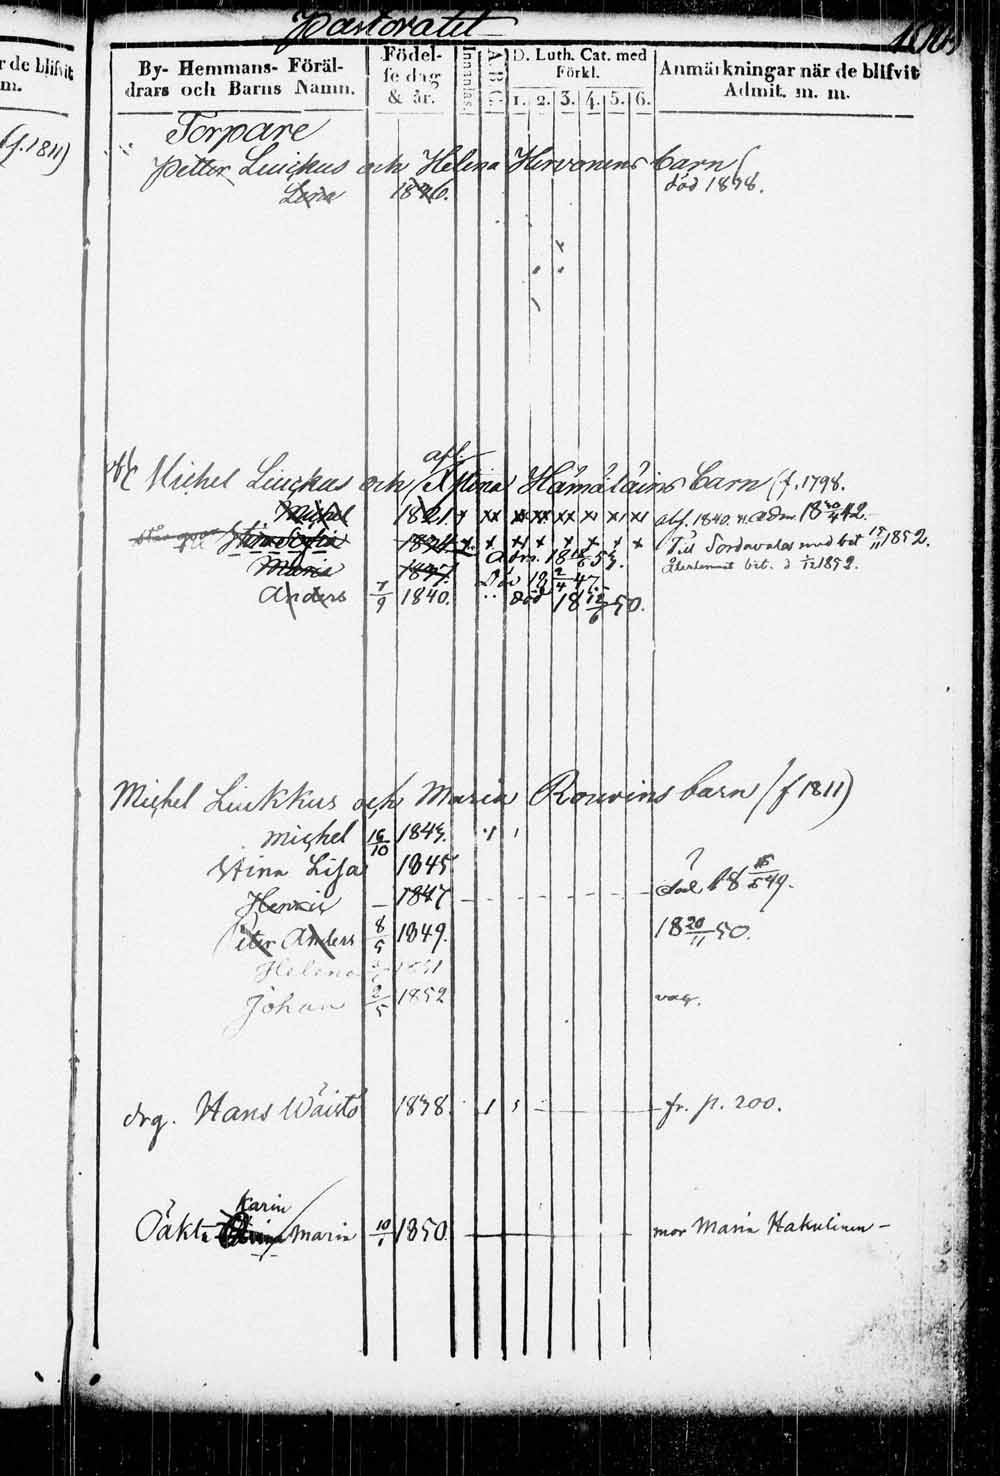 Pastoratet
r de blifvit
m.
(f. 1811)
By- Hemmans- Föräl-
drars och Barns Namn.
Födel-
se dag
& år.
Innanläs.
A B C.
D. Luth. Cat. med
Förkl.
1. 2. 3. 4. 5. 6.
Anmärkningar när de blifvit
Admit. m. m.
Torpare
Petter Liuckus och Helena Hirvonens barn
Lisa 1836. död 1838.
Michel Liuckus och Stina Hämäläins barn (f. 1798.
Michel 1821 x xx xx xx xx x x x
Stina Sofia x x x x x x x x Till Sordavala med bet 15/11 1852.
Maria 1837. Död 18 2/4 47.
Anders 7/9 1840. död 18 12/6 50.
Michel Liukkus och Maria Rouvins barn (f 1811)
Michel 16/10 1843.
Stina Lisa 1845
Henric 1847 18 15/5 49.
Peter Anders 8/5 1849. 18 20/11 50.
Helena 1851
Johan 2/5 1852 vac.
drg. Hans Wäistö 1838. fr. p. 200.
Karin
Oäkta Maria 10/1 1850. mor Maria Hakulinen -